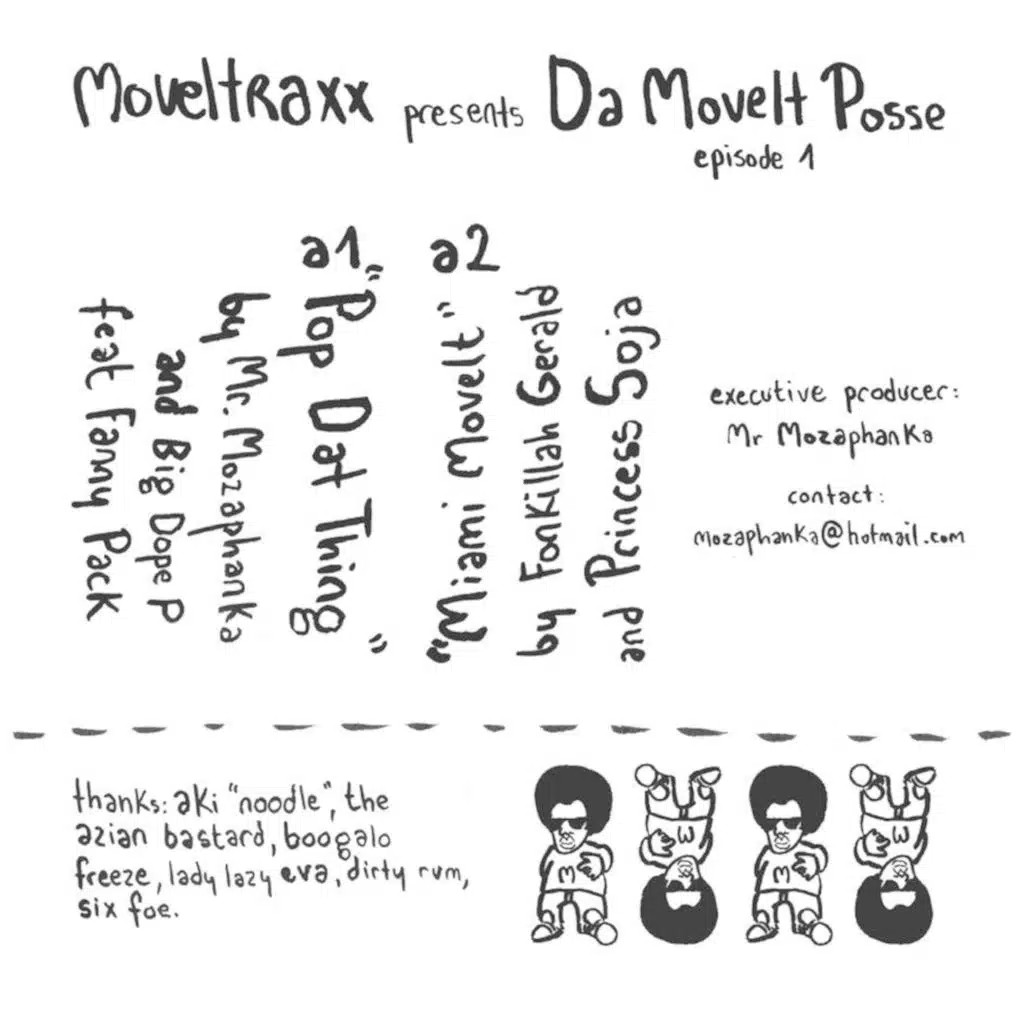 Moveltraxx presents Da Movelt Posse
episode 1
a1
"Pop Dat Thing"
by Mr. Mozaphanka
and Big Dope P
feat Fanny Pack
a2
"Miami Movelt"
by Fonkillah Gerald
and Princess Soja
executive producer:
Mr Mozaphanka
contact:
mozaphanka@hotmail.com
thanks: aki "noodle", the
azian bastard, boogalo
freeze, lady lazy eva, dirty rum,
six foe.
M
M
M
M